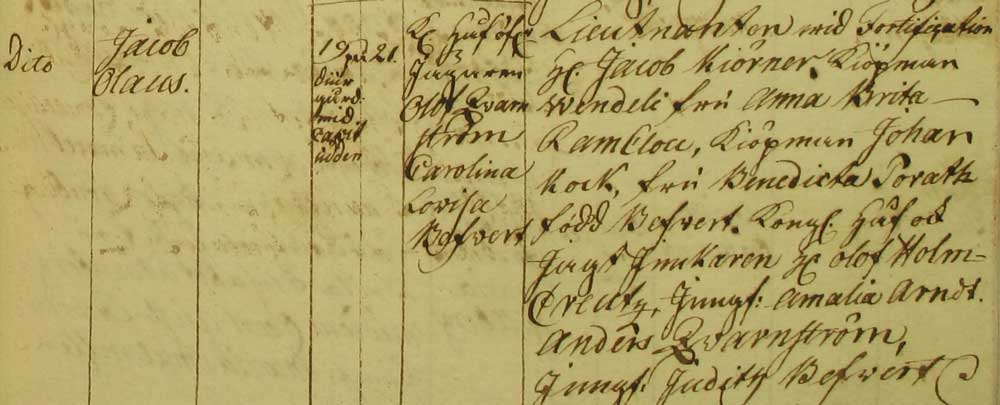 Dito
Jacob
Olaus.
19 21.
diur
gurd.
mid
udden
Kgl. Huf
Jägaren
Olof Qvarn
ström
Carolina
Lovisa
Befvert
Lieutnanten wid Fortification
H. Jacob Kiörner, Kiöpman
Wendeli fru Anna Brita
Ramclou, Kiöpman Johan
Kock, fru Benedicta Porath
född Befvert. Kongl. Huf ock
Jagt Junkaren H. Olof Holm-
Creutz, Jungf: Amalia Arndt.
Anders Qvarnström,
Jungf: Judith Befvert